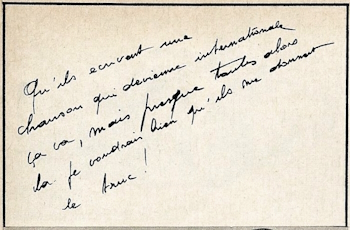 Qu'ils ecrivent une
chanson qui devienne internationale
ça va, mais presque toutes alors
là je voudrais bien qu'ils me donnent
le truc!